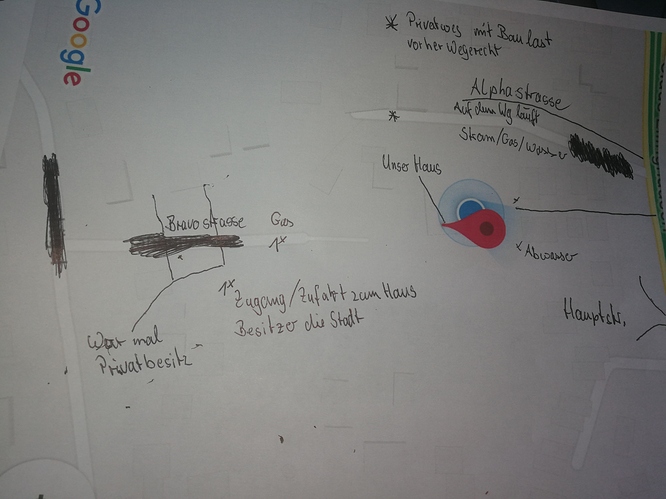 Google
* Privatweg mit Baulast
vorher Wegerecht
Alphastrasse
Auf dem Weg läuft
Strom/Gas/Wasser
*
Unser Haus
x
x Abwasser
Hauptstr.
Bravostrasse
Gas
1x
1x Zugang/Zufahrt zum Haus
Besitzer die Stadt
War mal
Privatbesitz